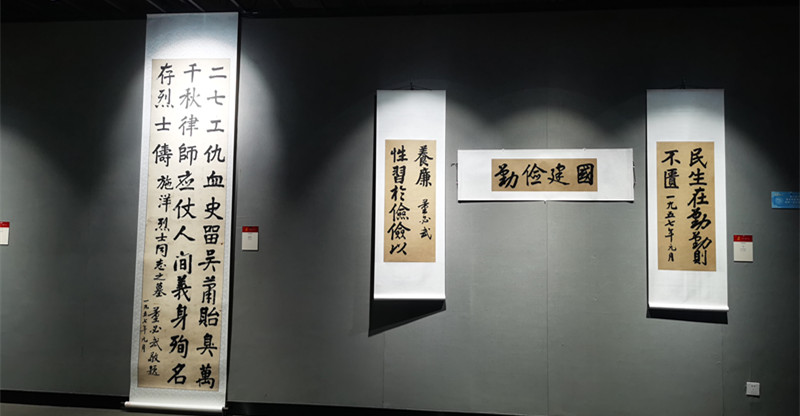 二七工仇血史留吴萧貽臭萬
千秋律師应仗人间義身殉名
存烈士傳
施洋烈士同志之墓
董必武敬题
一九五七年九月
性習於儉儉以
養廉
董必武
勤俭建國
民生在勤勤則
不匱
一九五七年九月